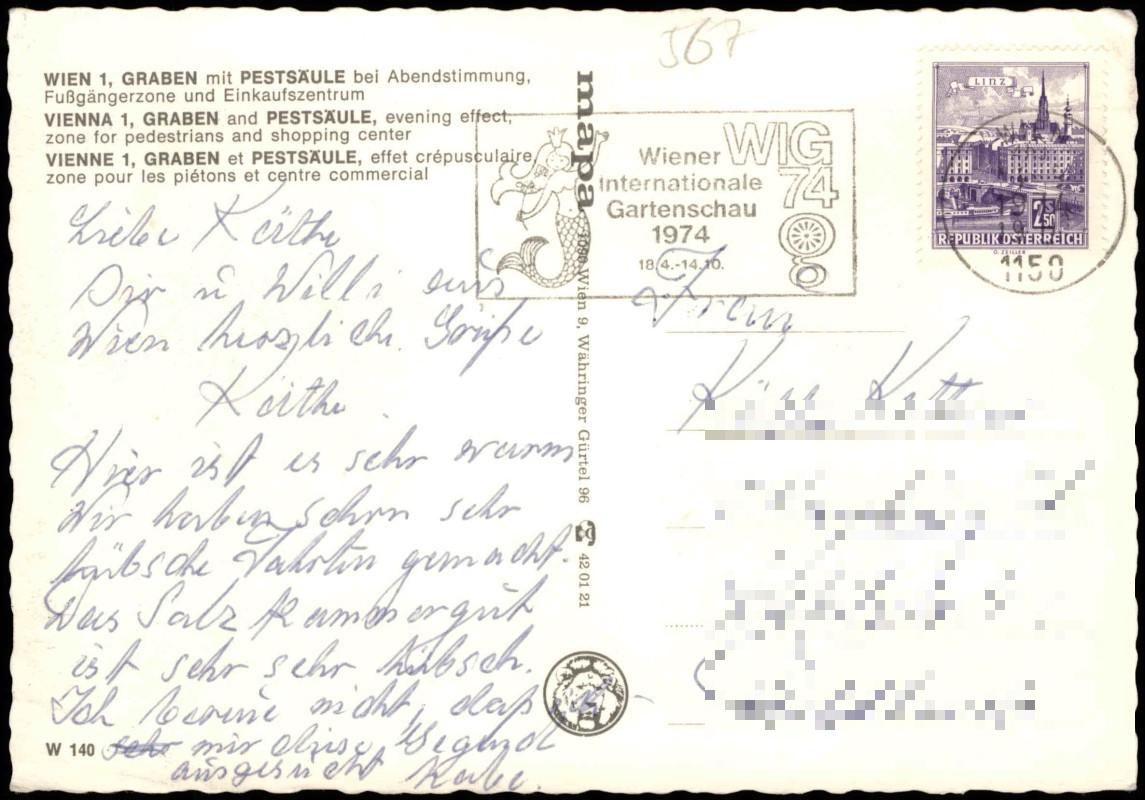 567
WIEN 1, GRABEN mit PESTSÄULE bei Abendstimmung,
Fußgängerzone und Einkaufszentrum
VIENNA 1, GRABEN and PESTSÄULE, evening effect,
zone for pedestrians and shopping center
VIENNE 1, GRABEN et PESTSÄULE, effet crépusculaire,
zone pour les piétons et centre commercial
Liebe Käthe
Dir u Willi aus
Wien herzliche Grüße
Käthe.
Hier ist es sehr warm
Wir haben schon sehr
hübsche Fahrten gemacht.
Das Salz Kammergut
ist sehr sehr hübsch.
Ich bereue nicht, daß
W 140 sehr mir diese Gegend
ausgesucht habe.
mapa
1090 Wien 9, Währinger Gürtel 96 42 01 21
Wiener
Internationale
Gartenschau
1974
18.4.-14.10.
WIG
74
LINZ
2 50
REPUBLIK ÖSTERREICH
O. ZEILLER
1150
Frau